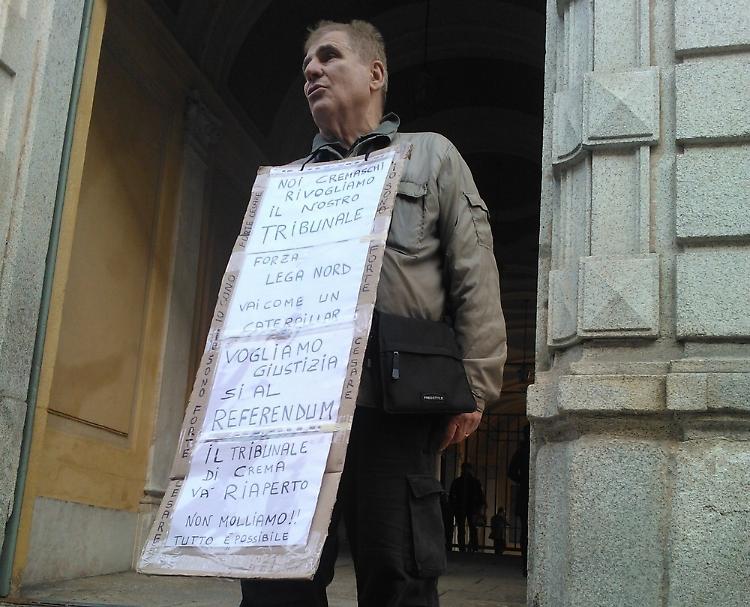 NOI CREMASCHI
RIVOGLIAMO
IL NOSTRO
TRIBUNALE
FORZA
LEGA NORD
VAI COME UN
CATERPILLAR
VOGLIAMO
GIUSTIZIA
SI AL
REFERENDUM
IL TRIBUNALE
DI CREMA
VA' RIAPERTO
NON MOLLIAMO!!
TUTTO È POSSIBILE
FORTE CESARE
SONO FORTE
CESARE
IO SONO
FORTE
CESARE
FREESTYLE